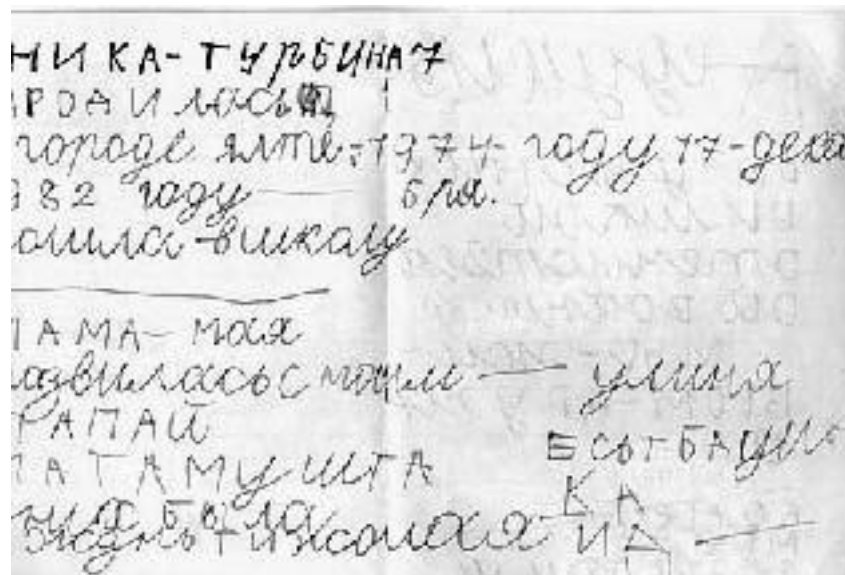 НИКА-ТУРБИНА7
АРОДИЛАСЬ
городе ялте-1974-году 17-дека
982 году — бря.
ошила-вшколу
МАМА-моя
азвиласьс моим — уминя
ПАПАЙ
ПАТАМУШТА ЕСЬТ-БАБУШ
КА
была И Д —